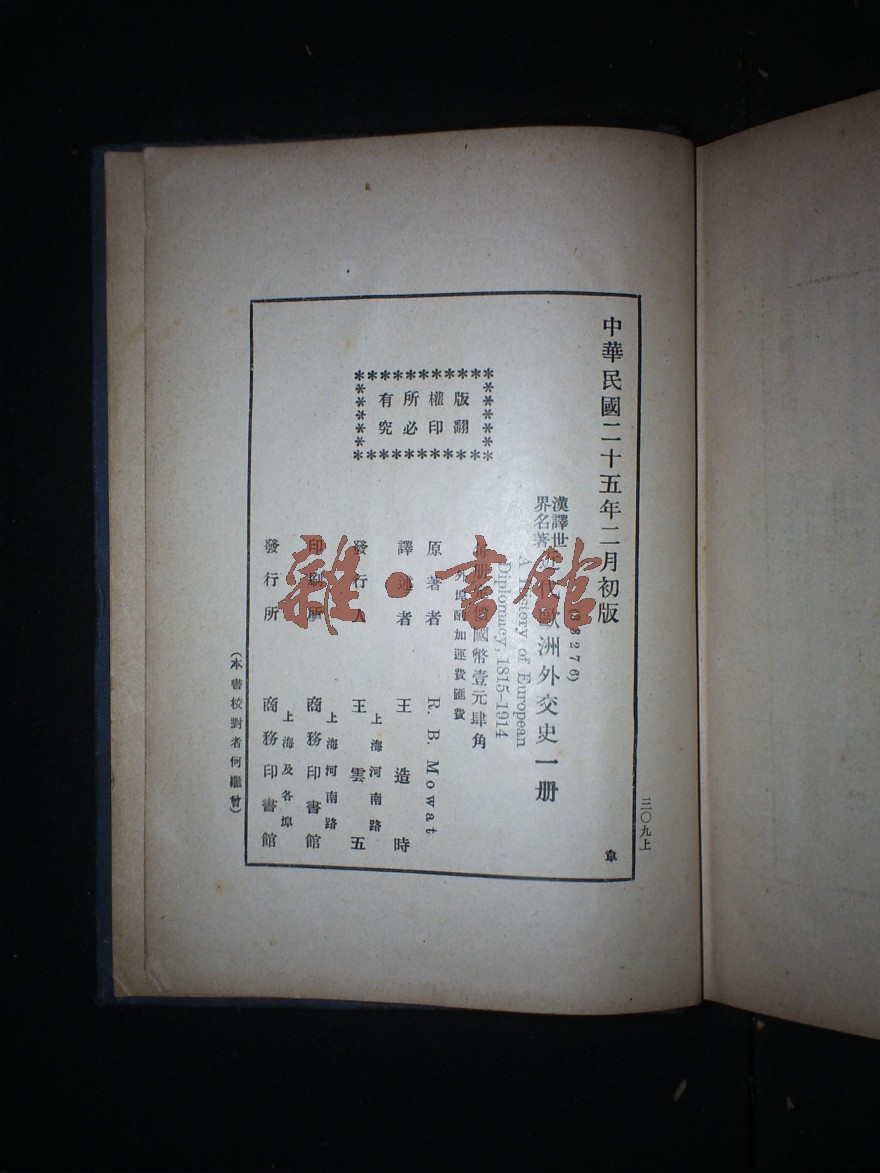 中華民國二十五年二月初版
三〇九上
章
(68276)
漢譯世
界名著
近代歐洲外交史一册
A History of European
Diplomacy, 1815-1914
每册定價國幣壹元肆角
外埠酌加運費匯費
版權所有
翻印必究
原著者 R. B. Mowat
譯述者 王造時
上海河南路
發行人 王雲五
上海河南路
印刷所 商務印書館
上海及各埠
發行所 商務印書館
(本書校對者何繼曾)
雜·書館